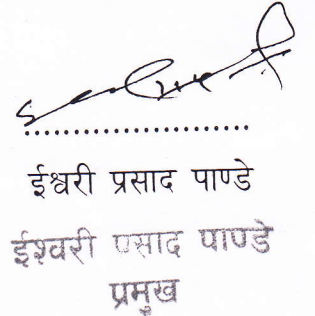 ........................
ईश्वरी प्रसाद पाण्डे
ईश्वरी प्रसाद पाण्डे
प्रमुख